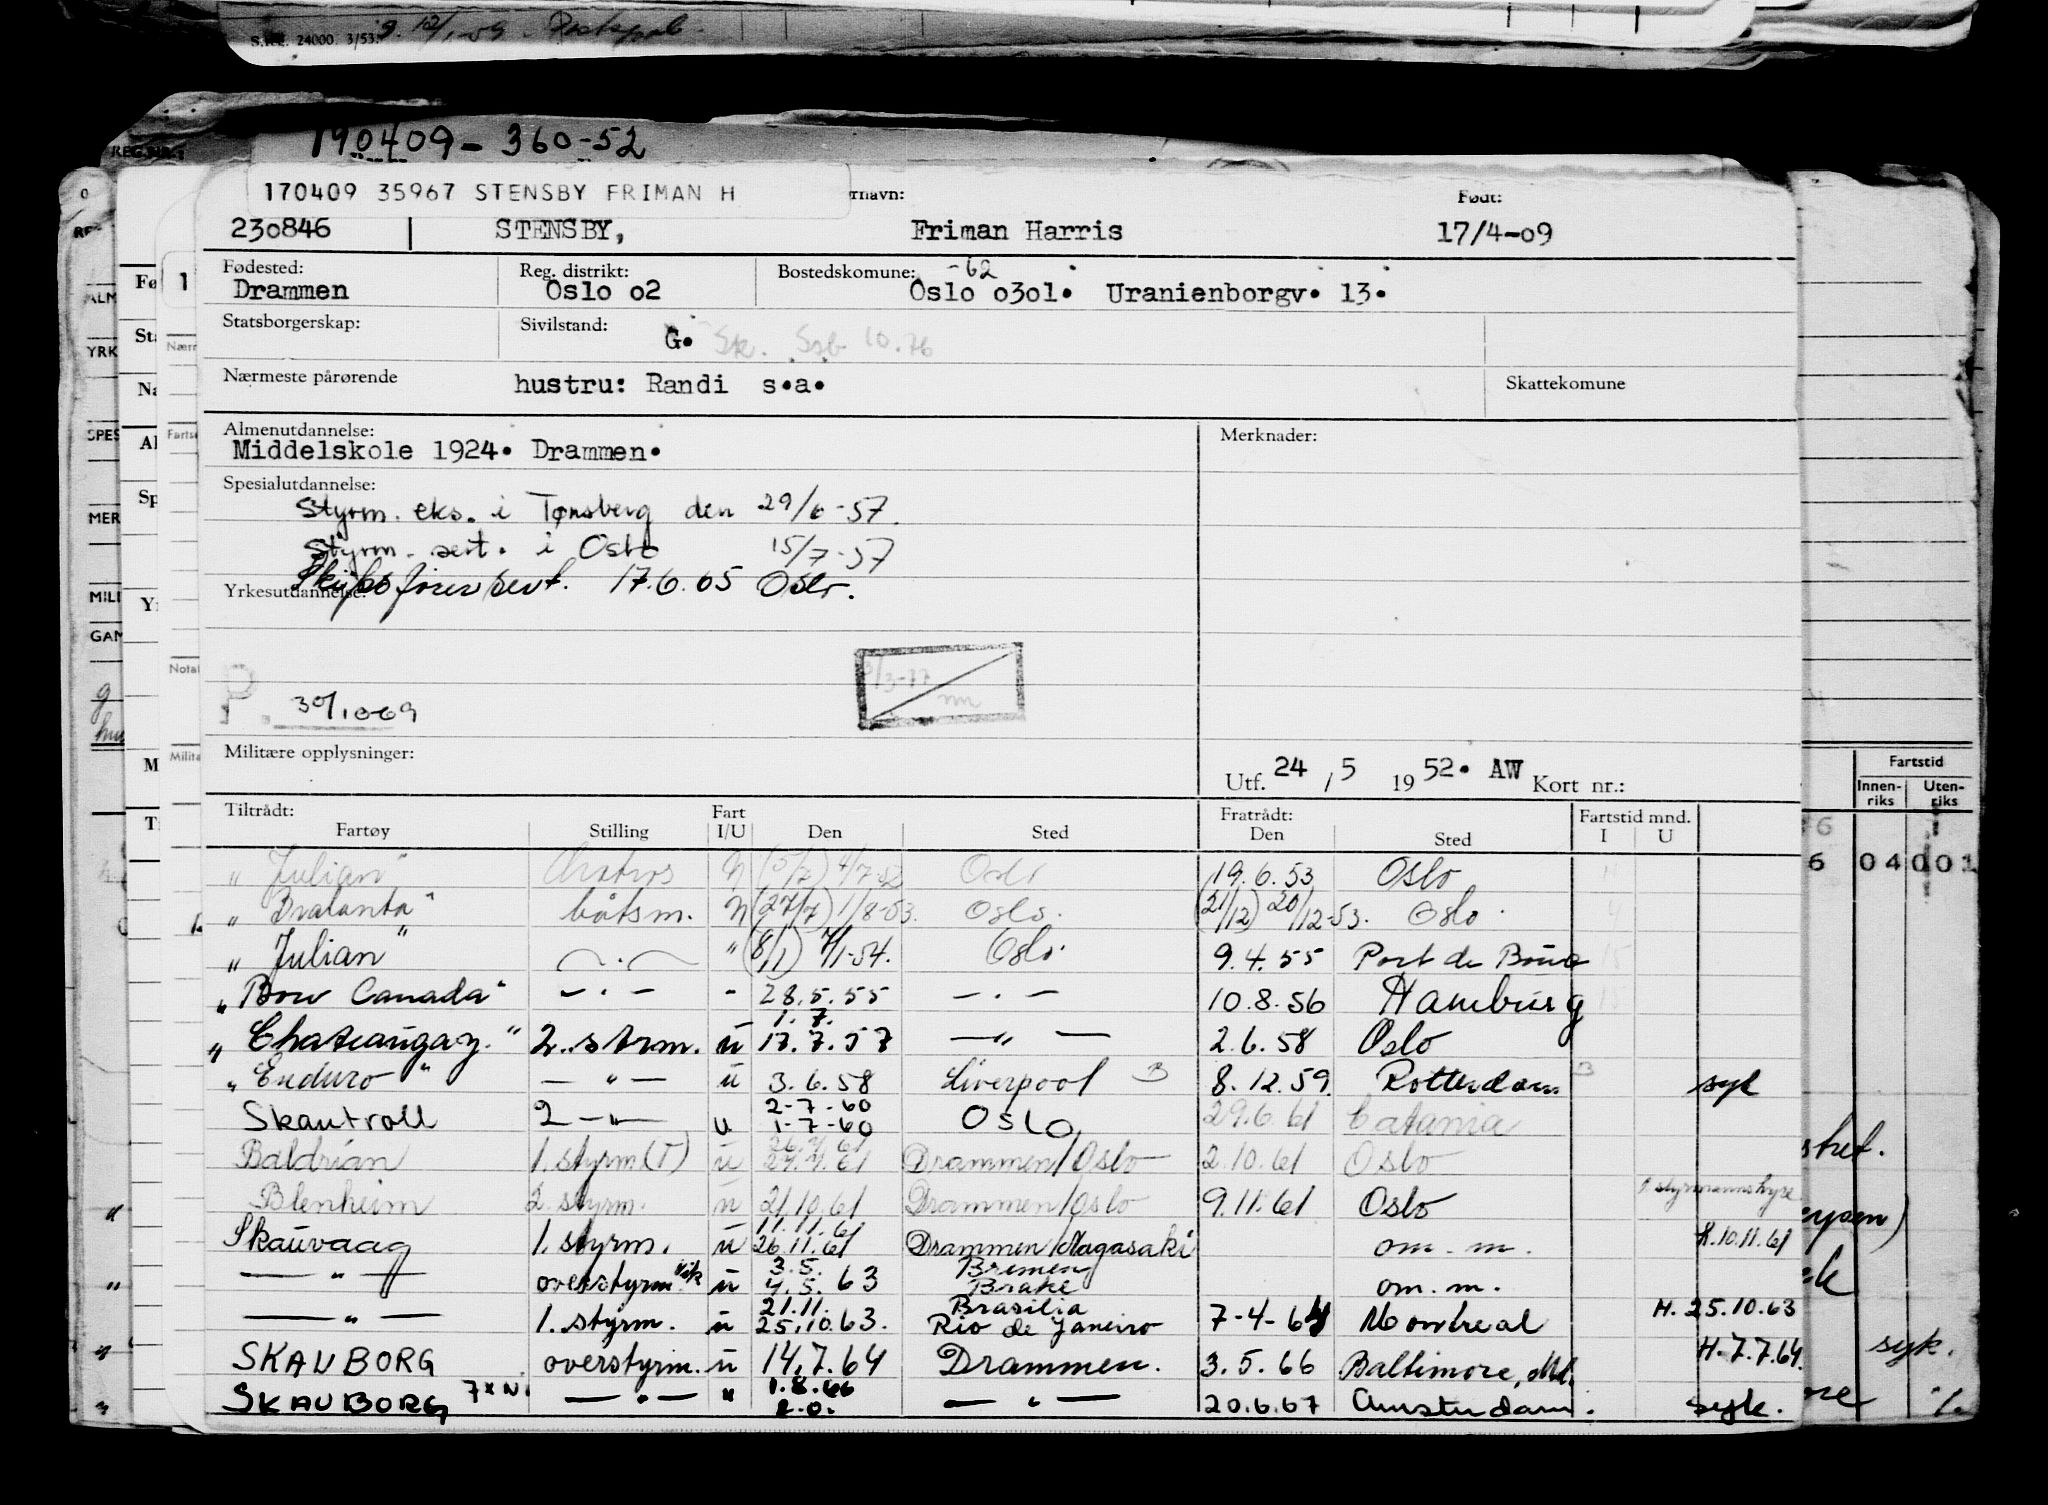 S.N.L. 24000. 3/53.
190409-360-52
REG.NR.
170409 35967 STENSBY FRIMAN H
rnavn: Født:
230846 STENSBY, Friman Harris 17/4-09
Fødested: Reg. distrikt: Bostedskomune: -62
Drammen Oslo o2 Oslo o3o1. Uranienborgv. 13.
Statsborgerskap: Sivilstand: G. Sk. Ssb 10.76
Nærmeste pårørende hustru: Randi s.a. Skattekomune
Almenutdannelse: Merknader:
Middelskole 1924. Drammen.
Spesialutdannelse:
Styrm. eks. i Tønsberg den 29/6-57.
Styrm. sert. i Oslo 15/7-57
Skipsførersert. 17.6.65 Oslo.
Yrkesutdannelse:
P. 30/10-69
/3-77
Militære opplysninger:
Utf. 24 / 5 19 52. AW Kort nr.:
Tiltrådt: Fart Fratrådt: Fartstid mnd.
Fartøy Stilling I/U Den Sted Den Sted I U
"Julian" Matros N (5/7) 4/7-52 Oslo 19.6.53 Oslo
"Dalanta" båtsm. N (27/7) 1/8-53. Oslo. (21/12) 20/12-53. Oslo.
"Julian" — . — " (8/1) 7/1-54. Oslo. 9.4.55 Port de Bouc 15
"Bow Canada" — . — " 28.5.55 — . — 10.8.56 Hamburg 15
1.7.
"Chateaugay." 2. strm. u 17.7.57 — " — 2.6.58 Oslo
"Enduro" — " — u 3.6.58 Liverpool 8.12.59. Rotterdam syk
2-7-60
Skautroll 2 — " — u 1-7-60 OSLO 29.6.61 Catania
26.7.61
Baldrian 1. styrm (T) u 27.7.61 Drammen/Oslo 2.10.61 Oslo
Blenheim 2. styrm. u 21.10.61 Drammen/Oslo 9.11.61 Oslo styrmannshyre
11.11.61
Skauvaag 1. styrm. u 26.11.61 Drammen/Nagasaki om. m. H.10.11.61
3.5. Bremen
— " — overstyrm. vik u 4.5.63 Brake om. m.
21.11. Brasilia
— " — 1. styrm. u 25.10.63. Rio de Janeiro 7-4-64 Montreal H. 25.10.63
SKAUBORG overstyrm. u 14.7.64 Drammen. 3.5.66 Baltimore, Md. H. 7.7.64.
1.8.66
SKAUBORG 7xN. — " — " — " — 20.6.67 Amsterdam. syk.
Fartstid
Innen-riks Uten-riks
6 04 001
syk.